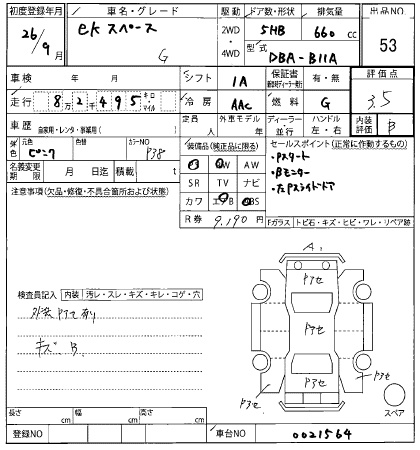 初度登録年月 車名・グレード 駆動 ドア数・形状 排気量 出品NO
26年9月 ekスペース G 2WD・4WD 5HB 660cc 53
型式 DBA-B11A
車検 年 月 シフト IA 保証書 有・無 評価点
走行 8万2千495 キロ・マイル 冷房 AAC 燃料 G 3.5
車歴 自家用・レンタ・事業用( ) 定員 人 外車モデル 年 ディーラー 並行 ハンドル 左・右 内装評価 B
色 元色 ピンク 色替 カラーNO P38 装備品(純正品に限る) セールスポイント(正常に作動するもの)
名義変更期限 月 日迄 積載 t AW ナビ
・Pスタート
・Bモニター
・左Pスライドドア
注意事項(欠品・修復・不具合箇所および状態) SR TV
カワ
R券 9,190円 Fガラス トビ石・キズ・ヒビ・ワレ・リペア跡
A1
検査員記入 内装 汚レ・スレ・キズ・キレ・コゲ・穴
キズ B
スペア
長さ cm 幅 cm 高さ cm
登録NO 車台NO 0021564